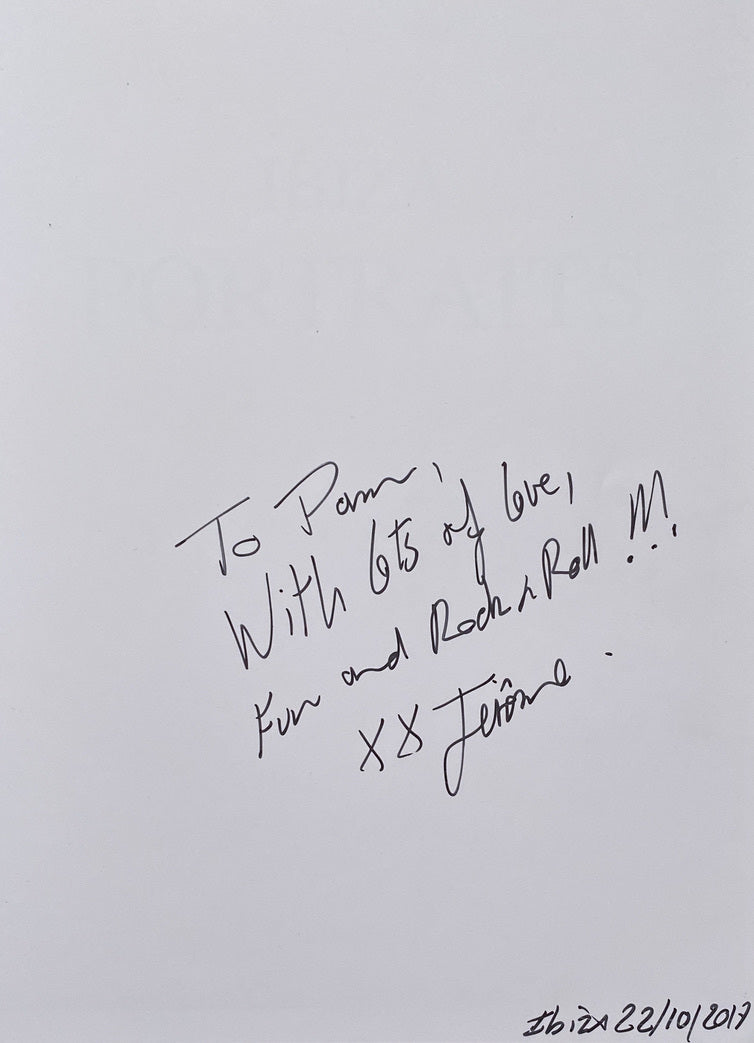 IBIZA
PORTRAITS
To Pam,
With lots of love,
Fun and Rock n Roll !!!
XX Jérôme.
Ibiza 22/10/2017